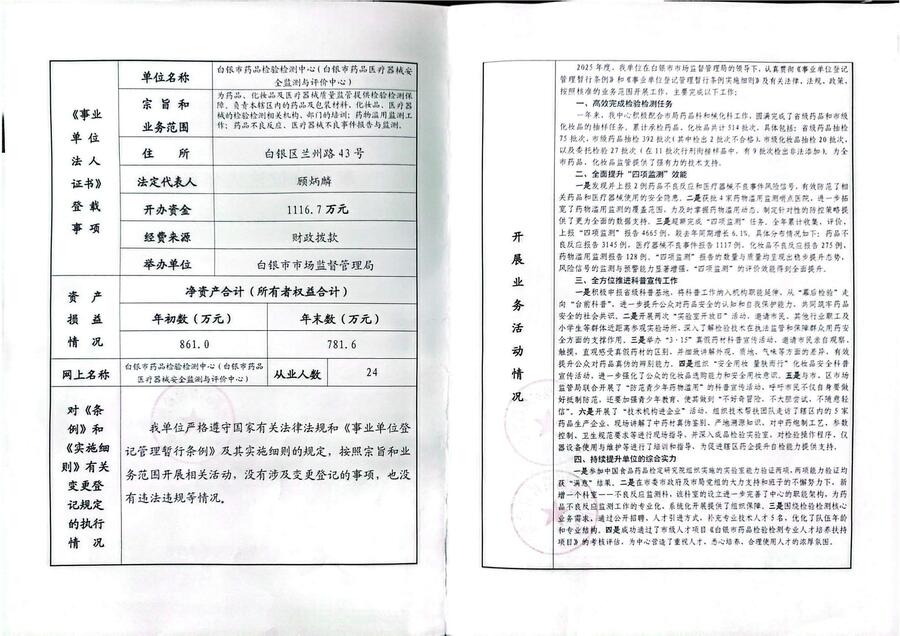 《事业
单位
法人
证书》
登载
事项
单位名称
白银市药品检验检测中心(白银市药品医疗器械安
全监测与评价中心)
宗旨和
业务范围
为药品、化妆品及医疗器械质量监管提供检验检测保
障。负责本辖区内的药品及包装材料、化妆品、医疗器
械的检验检测相关机构、部门的培训;药物滥用监测工
作;药品不良反应、医疗器械不良事件报告与监测。
住 所
白银区兰州路43号
法定代表人
顾炳麟
开办资金
1116.7万元
经费来源
财政拨款
举办单位
白银市市场监督管理局
资产
损益
情况
净资产合计(所有者权益合计)
年初数(万元)
年末数(万元)
861.0
781.6
网上名称
白银市药品检验检测中心(白银市药品
医疗器械安全监测与评价中心)
从业人数
24
对《条
例》和
《实施细
则》有关
变更登
记规定
的执行
情况
我单位严格遵守国家有关法律法规和《事业单位登
记管理暂行条例》及其实施细则的规定,按照宗旨和业
务范围开展相关活动,没有涉及变更登记的事项,也没
有违法违规等情况。
开展业务活动情况
2025年度,我单位在白银市市场监督管理局的领导下,认真贯彻《事业单位登记
管理暂行条例》和《事业单位登记管理暂行条例实施细则》及有关法律、法规、政策,
按照核准的业务范围开展工作,主要完成以下工作:
一、高效完成检验检测任务
一年来,我中心积极配合市局药品科和械化科工作,圆满完成了省级药品和市级
化妆品的抽样任务。累计承检药品、化妆品共计514批次,具体包括:省级药品抽检
75批次、市级药品抽检392批次(其中检出2批次不合格)、市级化妆品抽检20批次,
以及委托检验27批次(在11批次行刑衔接样品中,有9批次检出非法添加)。为全
市药品、化妆品监管提供了强有力的技术支持。
二、全面提升“四项监测”效能
一是发现并上报2例药品不良反应和医疗器械不良事件风险信号,有效防范了相
关药品和医疗器械使用的安全隐患。二是获批4家药物滥用监测哨点医院,进一步拓
宽了药物滥用监测的覆盖范围,为及时掌握药物滥用动态、制定针对性的防控策略提
供了更为全面的数据支持。三是超额完成“四项监测”任务。全年累计收集、评价、
上报“四项监测”报告4665例,较去年同期增长6.1%。具体分布情况如下:药品不
良反应报告3145例,医疗器械不良事件报告1117例,化妆品不良反应报告275例,
药物滥用监测报告128例。“四项监测”报告的数量与质量均呈现出稳步提升态势,
风险信号的监测与预警能力显著增强,“四项监测”的评价效能得到全面提升。
三、全方位推进科普宣传工作
一是积极申报省级科普基地,将科普工作纳入机构职能延伸,从“幕后检验”走
向“台前科普”,进一步提升公众对药品安全的认知和自我保护能力,共同筑牢药品
安全的社会共识。二是开展两次“实验室开放日”活动,邀请市民、其他行业职工及
小学生等群体近距离参观实验场所,深入了解检验技术在执法监管和保障群众用药安
全方面的支撑作用。三是举办“3·15”真假药材科普宣传活动,邀请市民亲自观察、
触摸,直观感受真假药材的区别,并细致讲解外观、质地、气味等方面的差异,有效
提升公众对药品真伪的辨别能力。四是组织“安全用妆 量肤而行”化妆品安全科普
宣传活动,进一步强化了公众的化妆品选购能力和安全用妆意识。五是与市、区市场
监管局联合开展了“防范青少年药物滥用”的科普宣传活动,呼吁市民不仅自身要做
好抵制防范,还要加强青少年教育,使其做到“不好奇冒险、不大胆尝试、不随意轻
信”。六是开展了“技术机构进企业”活动,组织技术帮扶团队走访了辖区内的5家
药品生产企业,现场讲解了中药材真伪鉴别、产地溯源知识,对中药炮制工艺、参数
控制、卫生规范要求等进行现场指导,并深入成品检验实验室,对检验操作程序、仪
器设备使用与维护等进行了培训和指导,为促进辖区药企提升自检能力提供支持。
四、持续提升单位的综合实力
一是参加中国食品药品检定研究院组织实施的实验室能力验证两项,两项能力验证均
获“满意”结果。二是在市委市政府及市局党组的大力支持和班子的不懈努力下,新
增一个科室——不良反应监测科,该科室的设立进一步完善了中心的职能架构,为药
品不良反应监测工作的专业化、系统化开展提供了组织保障。三是围绕检验检测核心
业务需求,通过公开招聘、人才引进方式,补充专业技术人才5名,优化了队伍年龄
和专业结构。四是成功通过了市级人才项目《白银市药品检验检测专业人才培养扶持
项目》的考核评估,为中心营造了重视人才、悉心培养、合理使用人才的浓厚氛围。